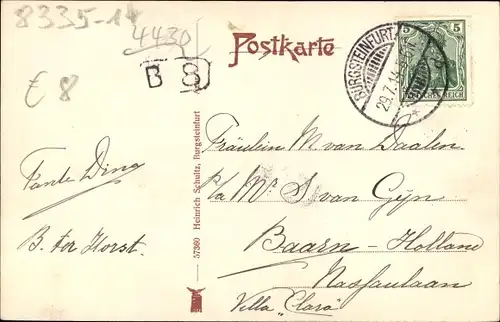 8335-14
4430
B 8
€ 8
Postkarte
BURGSTEINFURT
29.7.14
5 5
Fräulein M. van Daalen.
p/a Mr S. van Gijn
Baarn - Holland
Nassaulaan
Villa „Clara"
Tante Dina
B. ter Horst.
57360 Heinrich Schultz, Burgsteinfurt